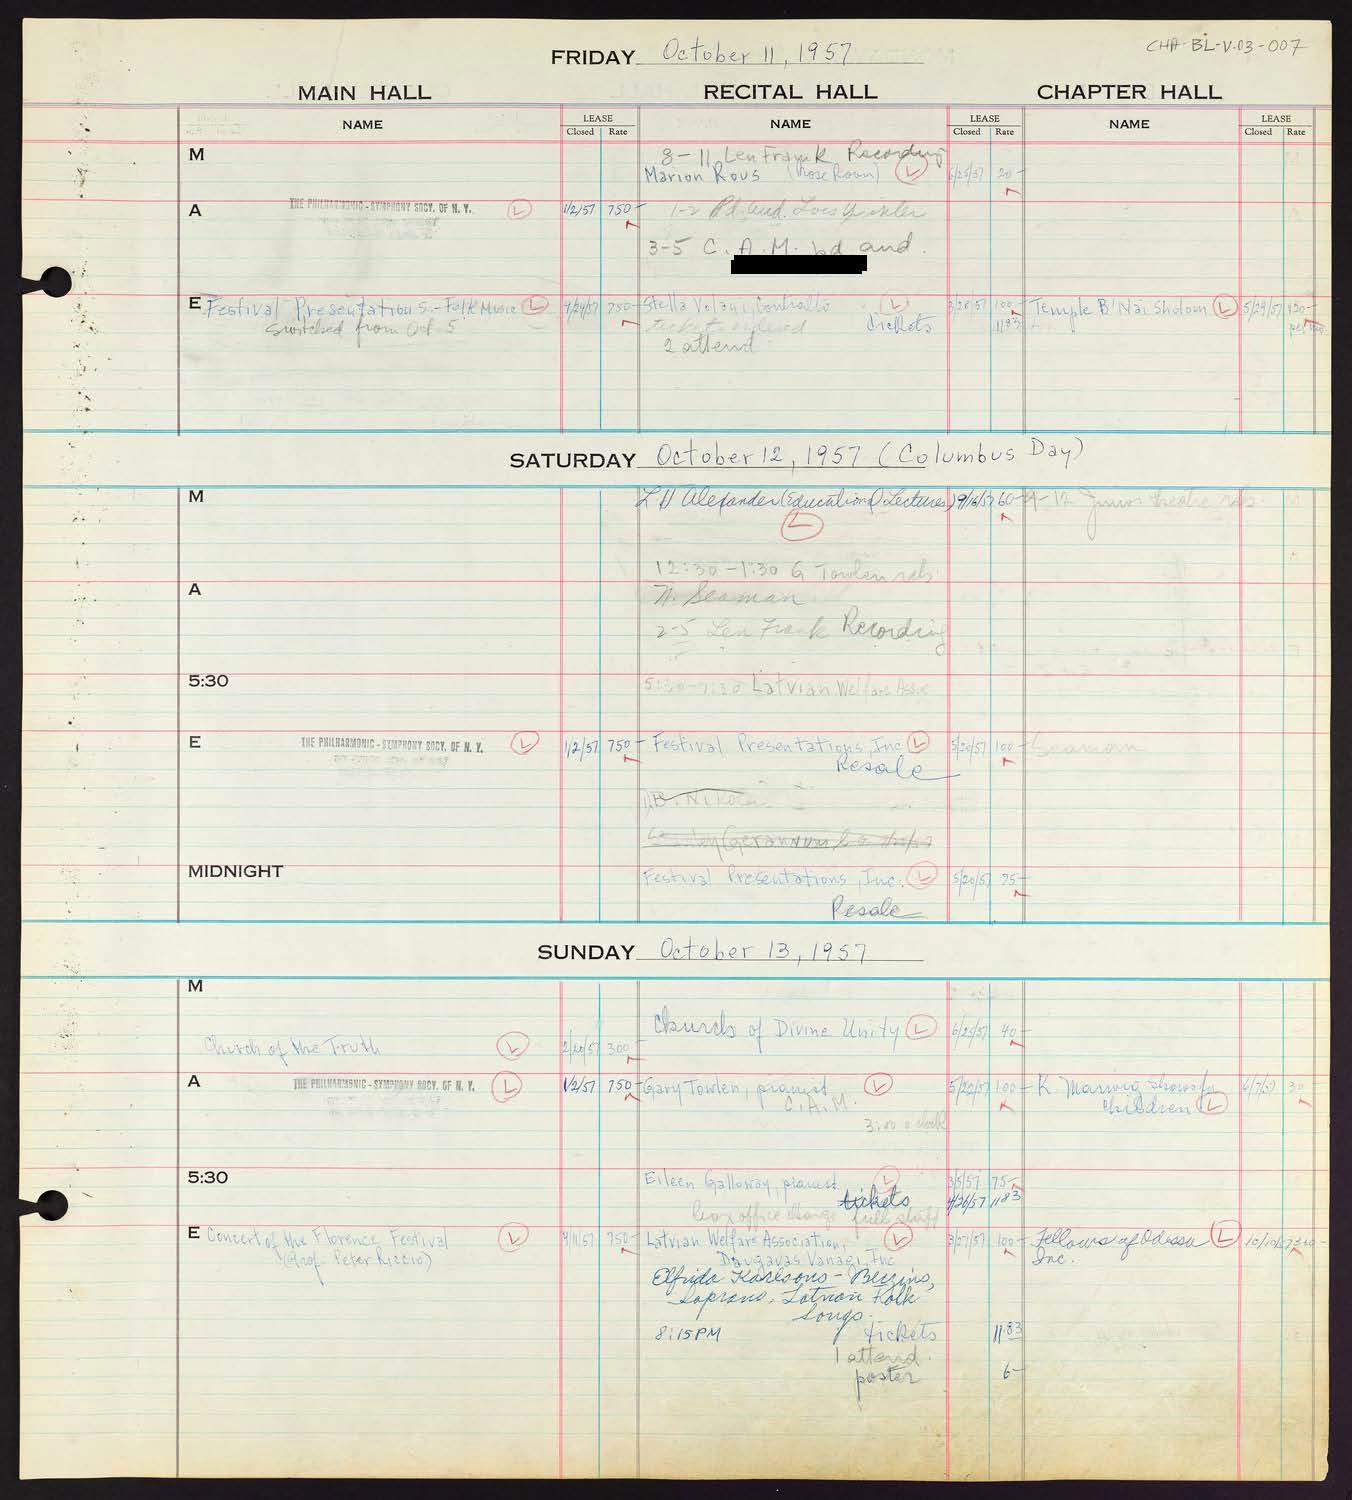 CHA-BL-V.03-007
FRIDAY October 11, 1957
MAIN HALL RECITAL HALL CHAPTER HALL
NAME LEASE Closed Rate NAME LEASE Closed Rate NAME LEASE Closed Rate
M 8-11 Len Frank Recording
Marion Rous (Rose Room) L 6/25/57 20-
A THE PHILHARMONIC-SYMPHONY SOCY. OF N. Y. L 1/2/57 750- 1-2 Pd. aud.
3-5 C.A.M. bd aud.
E Festival Presentations - Folk Music L 9/24/57 750- Stella Volani, Contralto L 3/28/57 100- Temple B'Nai Sholom L 5/29/57
switched from Oct 5 tickets ordered tickets 11.83 per
2 attend
SATURDAY October 12, 1957 (Columbus Day)
M L H Alexander (Educational Lectures) 9/16/57 60- 9-12 Junior theatre reh
L
12:30-1:30 G Towlen reh
A N. Seaman
2-5 Len Frank Recording
5:30 5:30-7:30 Latvian Welfare Assoc
E THE PHILHARMONIC-SYMPHONY SOCY. OF N. Y. L 1/2/57 750- Festival Presentations, Inc L 5/20/57 100- Seaman
Resale
MIDNIGHT Festival Presentations, Inc. L 5/20/57 75-
Resale
SUNDAY October 13, 1957
M
Church of Divine Unity L 6/25/57 40-
Church of the Truth L 300-
A THE PHILHARMONIC-SYMPHONY SOCY. OF N. Y. L 1/2/57 750- Gary Towlen, pianist L 5/20/57 100- K. Marwig show for L 6/7/57 30-
C.A.M. children
3:00 o'clock
5:30 Eileen Galloway, pianist L 3/5/57 75-
tickets 4/26/57 11.83
box office charge full staff
E Concert of the Florence Festival L 4/11/57 750- Latvian Welfare Association, L 3/27/57 100- Fellows of Odessa L 10/10/57
(Prof. Peter Riccio) Daugavas Vanagi, Inc Inc.
Elfrida Karlsons-Berzins,
Soprano, Latvian Folk
Songs.
8:15 PM tickets 11.83
1 attend.
poster 6-